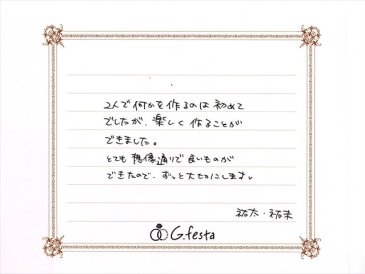 2人で何かを作るのは初めて
でしたが、楽しく作ることが
できました。
とても想像通りで良いものが
できたので、ずっと大切にします。
祐太・祐未
G.festa